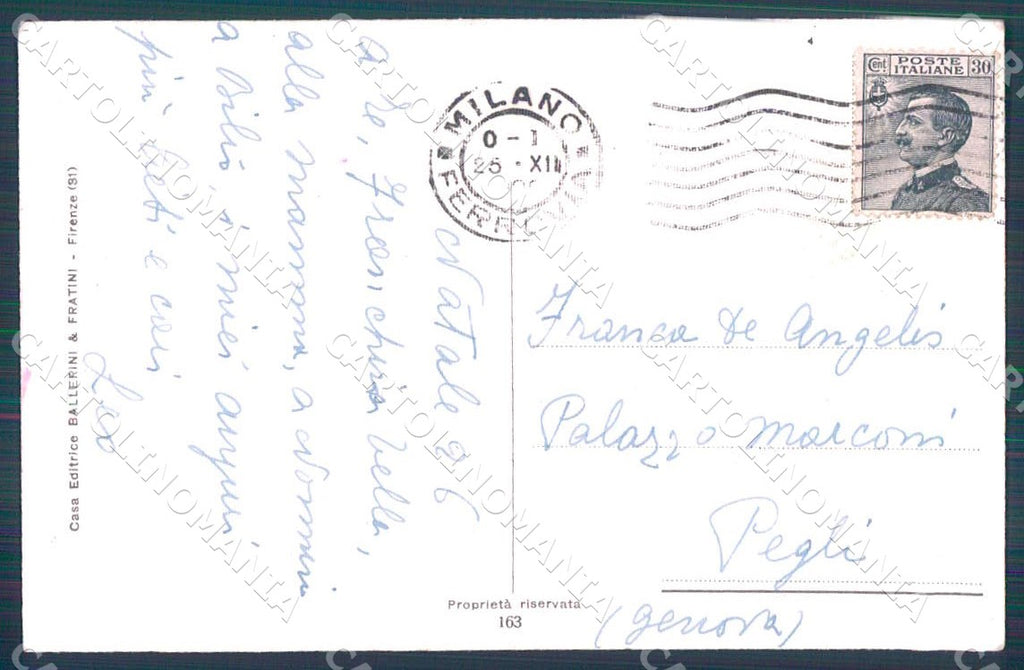 NATALE 26
A te, Franchina bella,
alla mamma, a
a Bibió i miei auguri
più e cari
Casa Editrice BALLERINI & FRATINI - Firenze (S1)
MILANO
0 - 1
25 · XII
FERROVIA
Cent. POSTE ITALIANE 30
Franca De Angelis
Palazzo Marconi
Pegli
(Genova)
Proprietà riservata
163
CARTOLINOMANIA